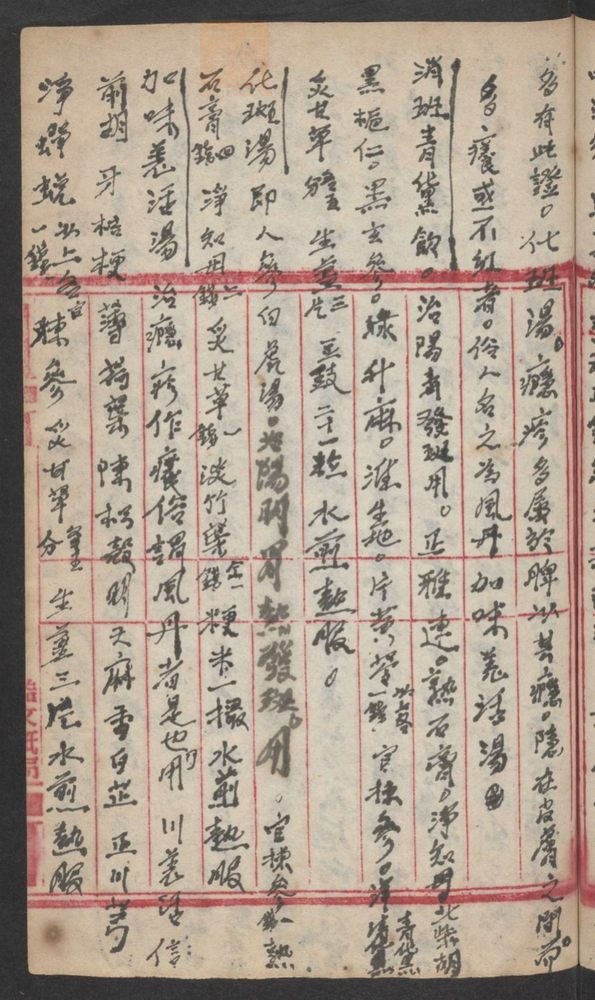 多有此證。化斑湯。癮疹多屬於脾以其癮。隱在皮膚之間。而
多癢或不紅者。俗人名之為風丹加味羌活湯
消斑青黛飲。治陽毒發斑用。正雅連。熟石膏。淨知母北柴胡
黑梔仁。黑玄參。綠升麻。淮生地。片黃芩以上各一錢官揀參。洋青黛
炙甘草生薑三片豆豉二十一粒水煎熱服。
化斑湯即人參白虎湯。治陽明胃熱發斑。用。官揀參一錢熟
石膏四錢淨知母二錢炙甘草一錢淡竹葉粳米一撮水煎熱服
加味羌活湯治癮疹作癢俗謂風丹者是也用川羌活信
前胡牙桔梗薄荷葉陳枳殼明天麻香白芷正川芎
淨蟬蛻以上各一錢官揀參炙甘草生薑三片水煎熱服